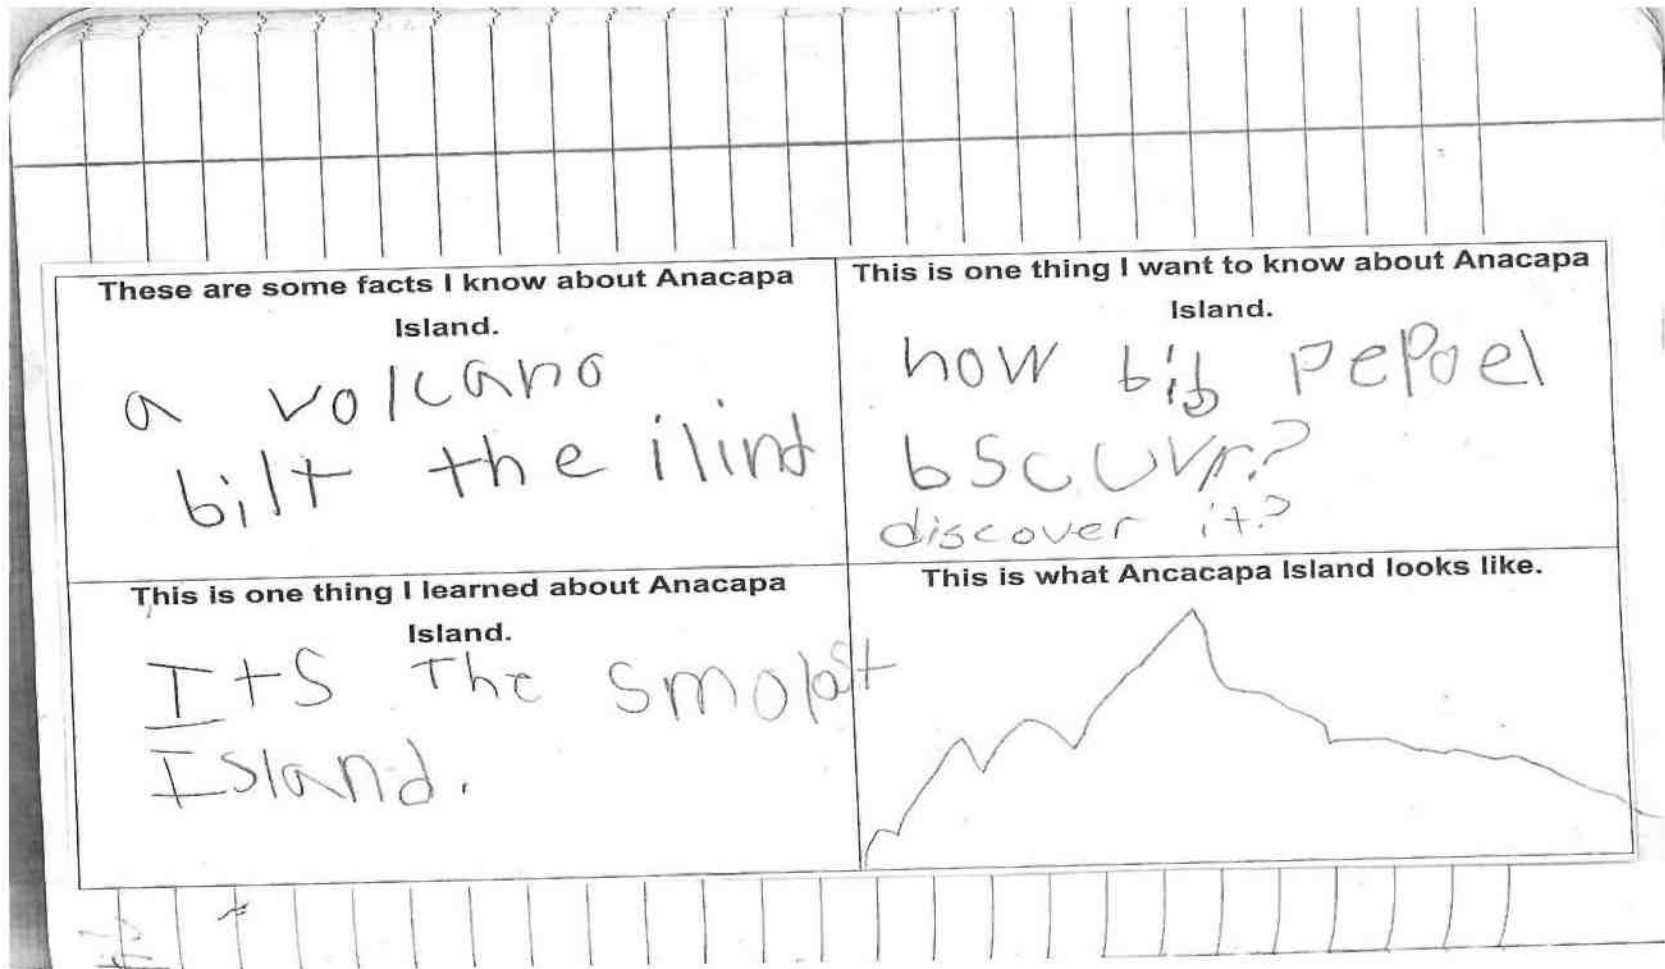 These are some facts I know about Anacapa
Island.
a volcano
bilt the ilind
This is one thing I want to know about Anacapa
Island.
how bib pePoel
bScuvr?
discover it?
This is one thing I learned about Anacapa
Island.
ItS The Smolast
Island.
This is what Ancacapa Island looks like.